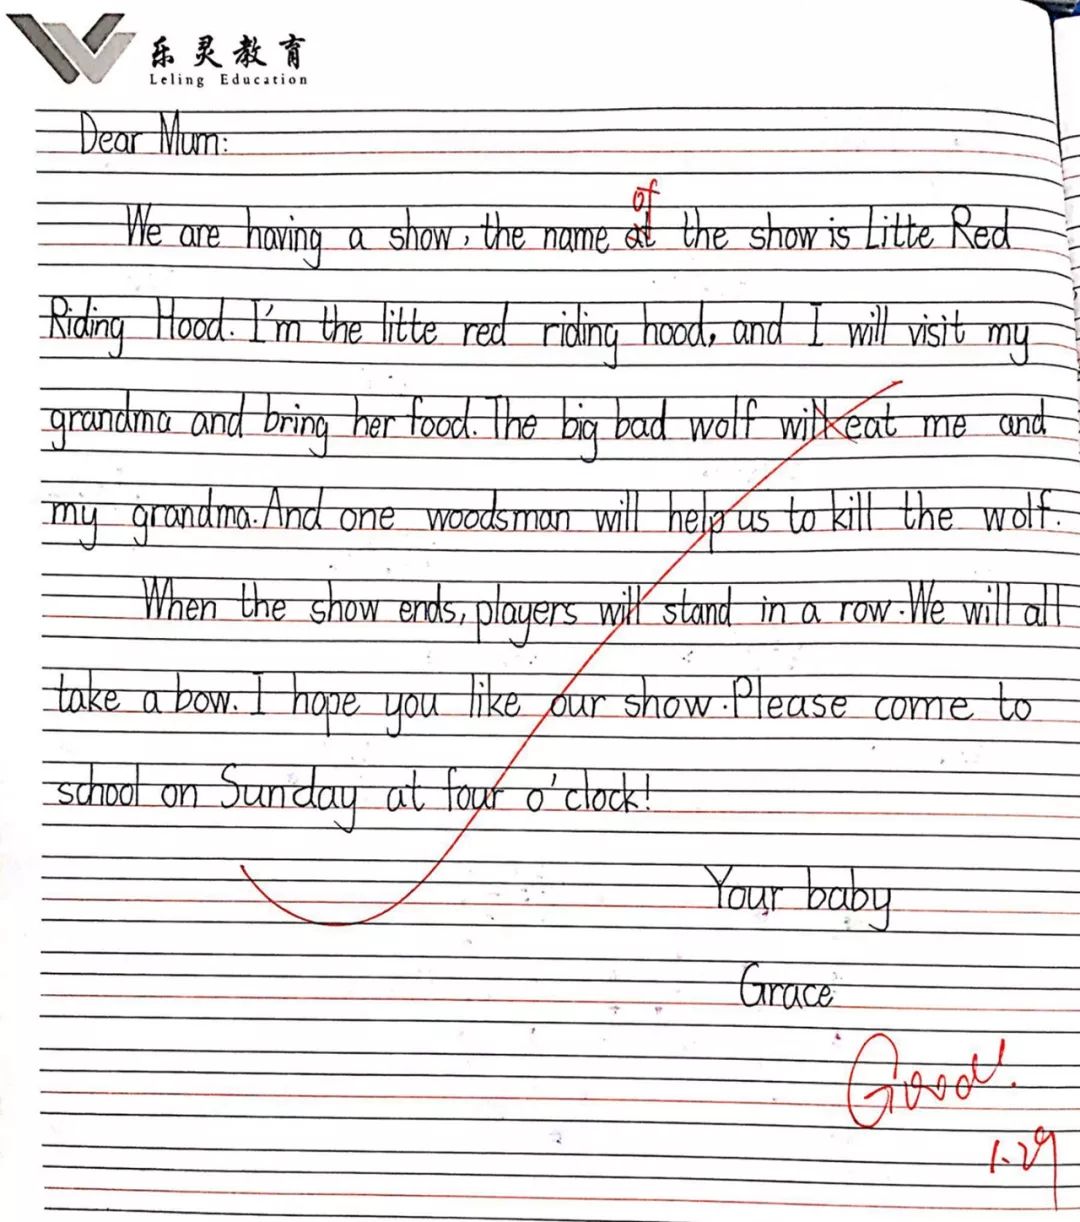 乐灵教育
Leling Education
Dear Mum:
of
We are having a show, the name at the show is Litte Red
Riding Hood. I'm the litte red riding hood, and I will visit my
grandma and bring her food. The big bad wolf will eat me and
my grandma. And one woodsman will help us to kill the wolf.
When the show ends, players will stand in a row. We will all
take a bow. I hope you like our show. Please come to
school on Sunday at four o'clock!
Your baby
Grace
Good!
1.29